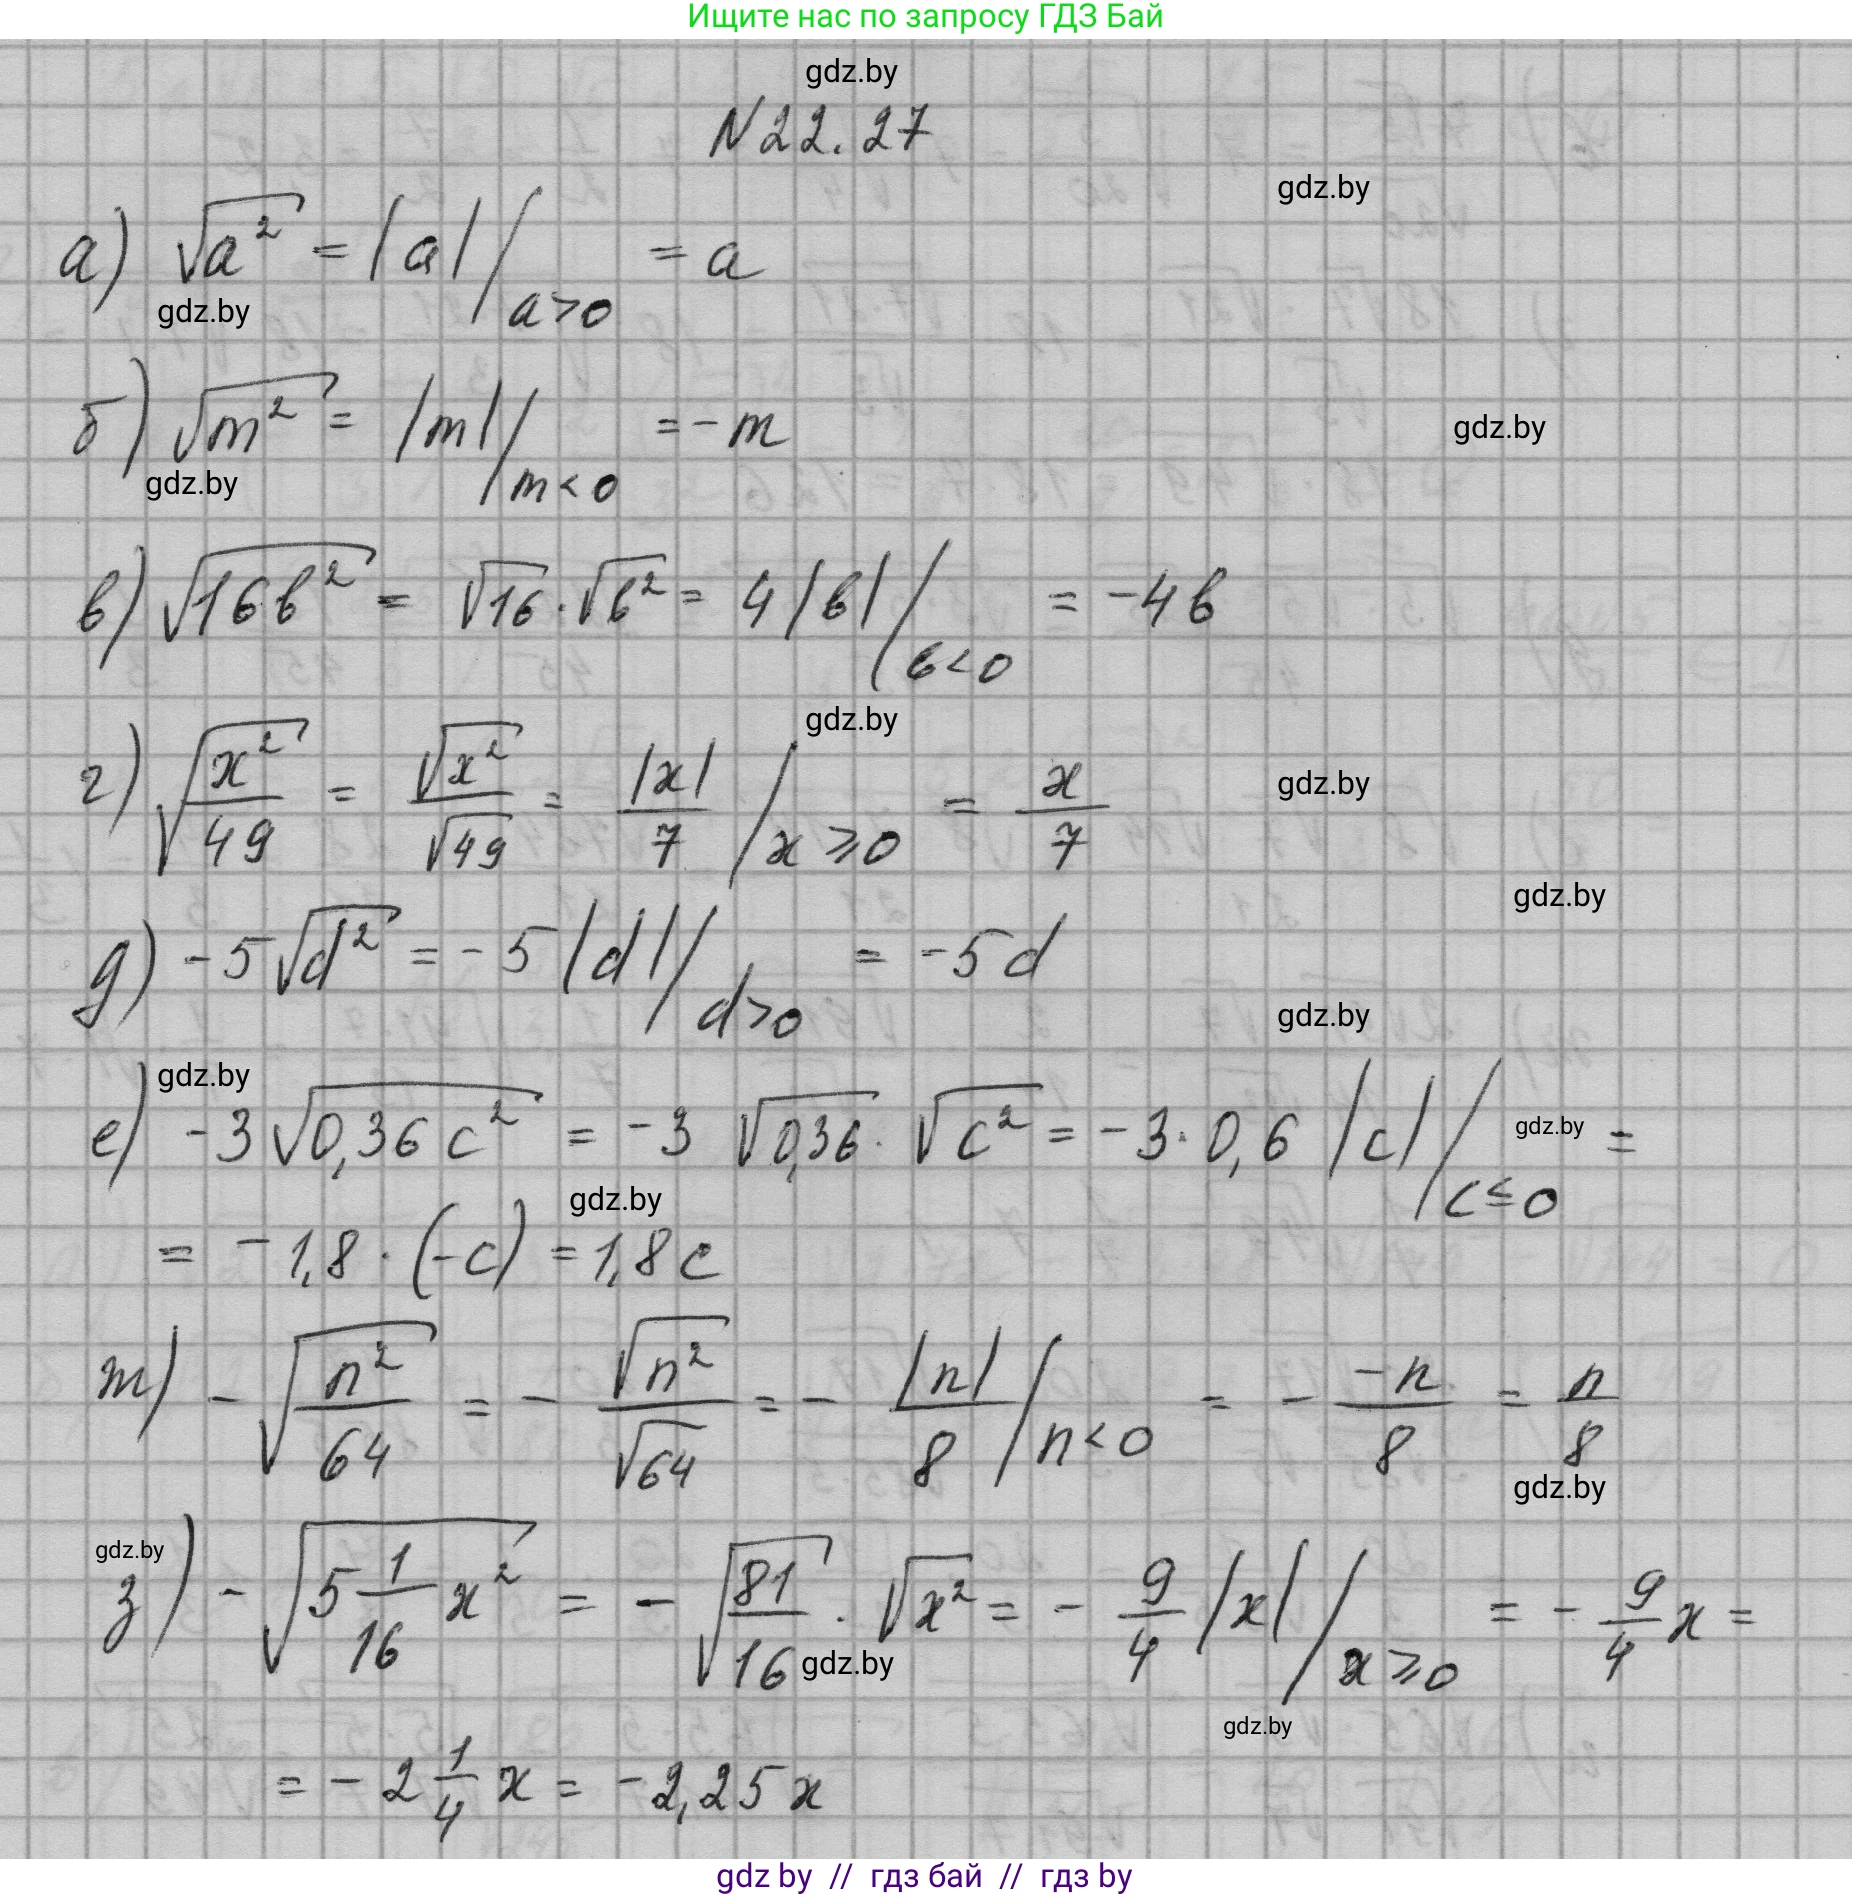 Ищите нас по запросу ГДЗ Бай
gdz.by
N22.27
gdz.by
а) √a² = |a| / a>0 = a
gdz.by
б) √m² = |m| / m<0 = -m
gdz.by
gdz.by
в) √16b² = √16 · √b² = 4|b| / b<0 = -4b
gdz.by
г) √x²/49 = √x²/√49 = |x|/7 / x⩾0 = x/7
gdz.by
gdz.by
д) -5√d² = -5|d| / d>0 = -5d
gdz.by
gdz.by
е) -3√0,36c² = -3√0,36 · √c² = -3·0,6|c| / c≤0 =
gdz.by
gdz.by
= -1,8·(-c) = 1,8c
ж) -√n²/64 = -√n²/√64 = -|n|/8 / n<0 = - -n/8 = n/8
gdz.by
gdz.by
з) -√5 1/16 x² = -√81/16 · √x² = -9/4|x| / x⩾0 = -9/4x =
gdz.by
gdz.by
= -2 1/4 x = -2,25x
gdz by // гдз бай // гдз by